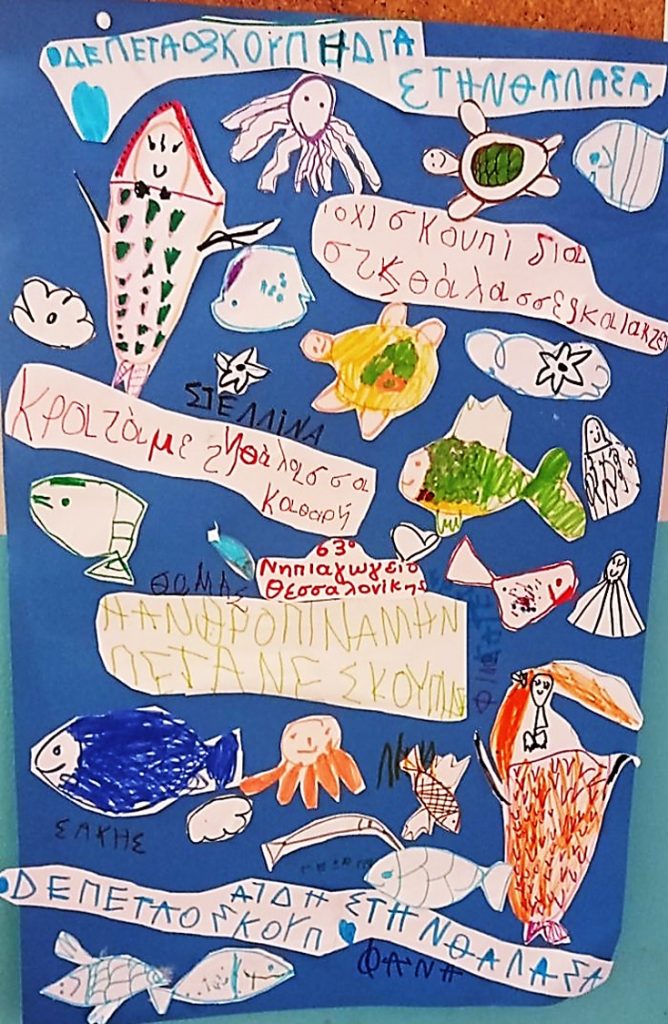 ΔΕ ΠΕΤΑΟ ΣΚΟΥΠΗΔΓΑ
ΣΤΗΝ ΘΑΛΑΣΑ
όχι σκουπίδια
στις θάλασσες και ακτές
ΣΤΕΛΛΙΝΑ
Κρατάμε τη θάλασσα
καθαρή
63ο
Νηπιαγωγείο
Θεσσαλονίκης
ΘΩΜΑΣ
Η ΑΝΘΡΟΠΙ ΝΑ ΜΗΝ
ΠΕΤΑΝΕ ΣΚΟΥΠΙΔ
ΣΑΚΗΣ
ΔΕ ΠΕΤΑΟ ΣΚΟΥΠ
ΑΙΔΗ
ΣΤΗΝ ΘΑΛΑΣΑ
ΦΑΝΗ